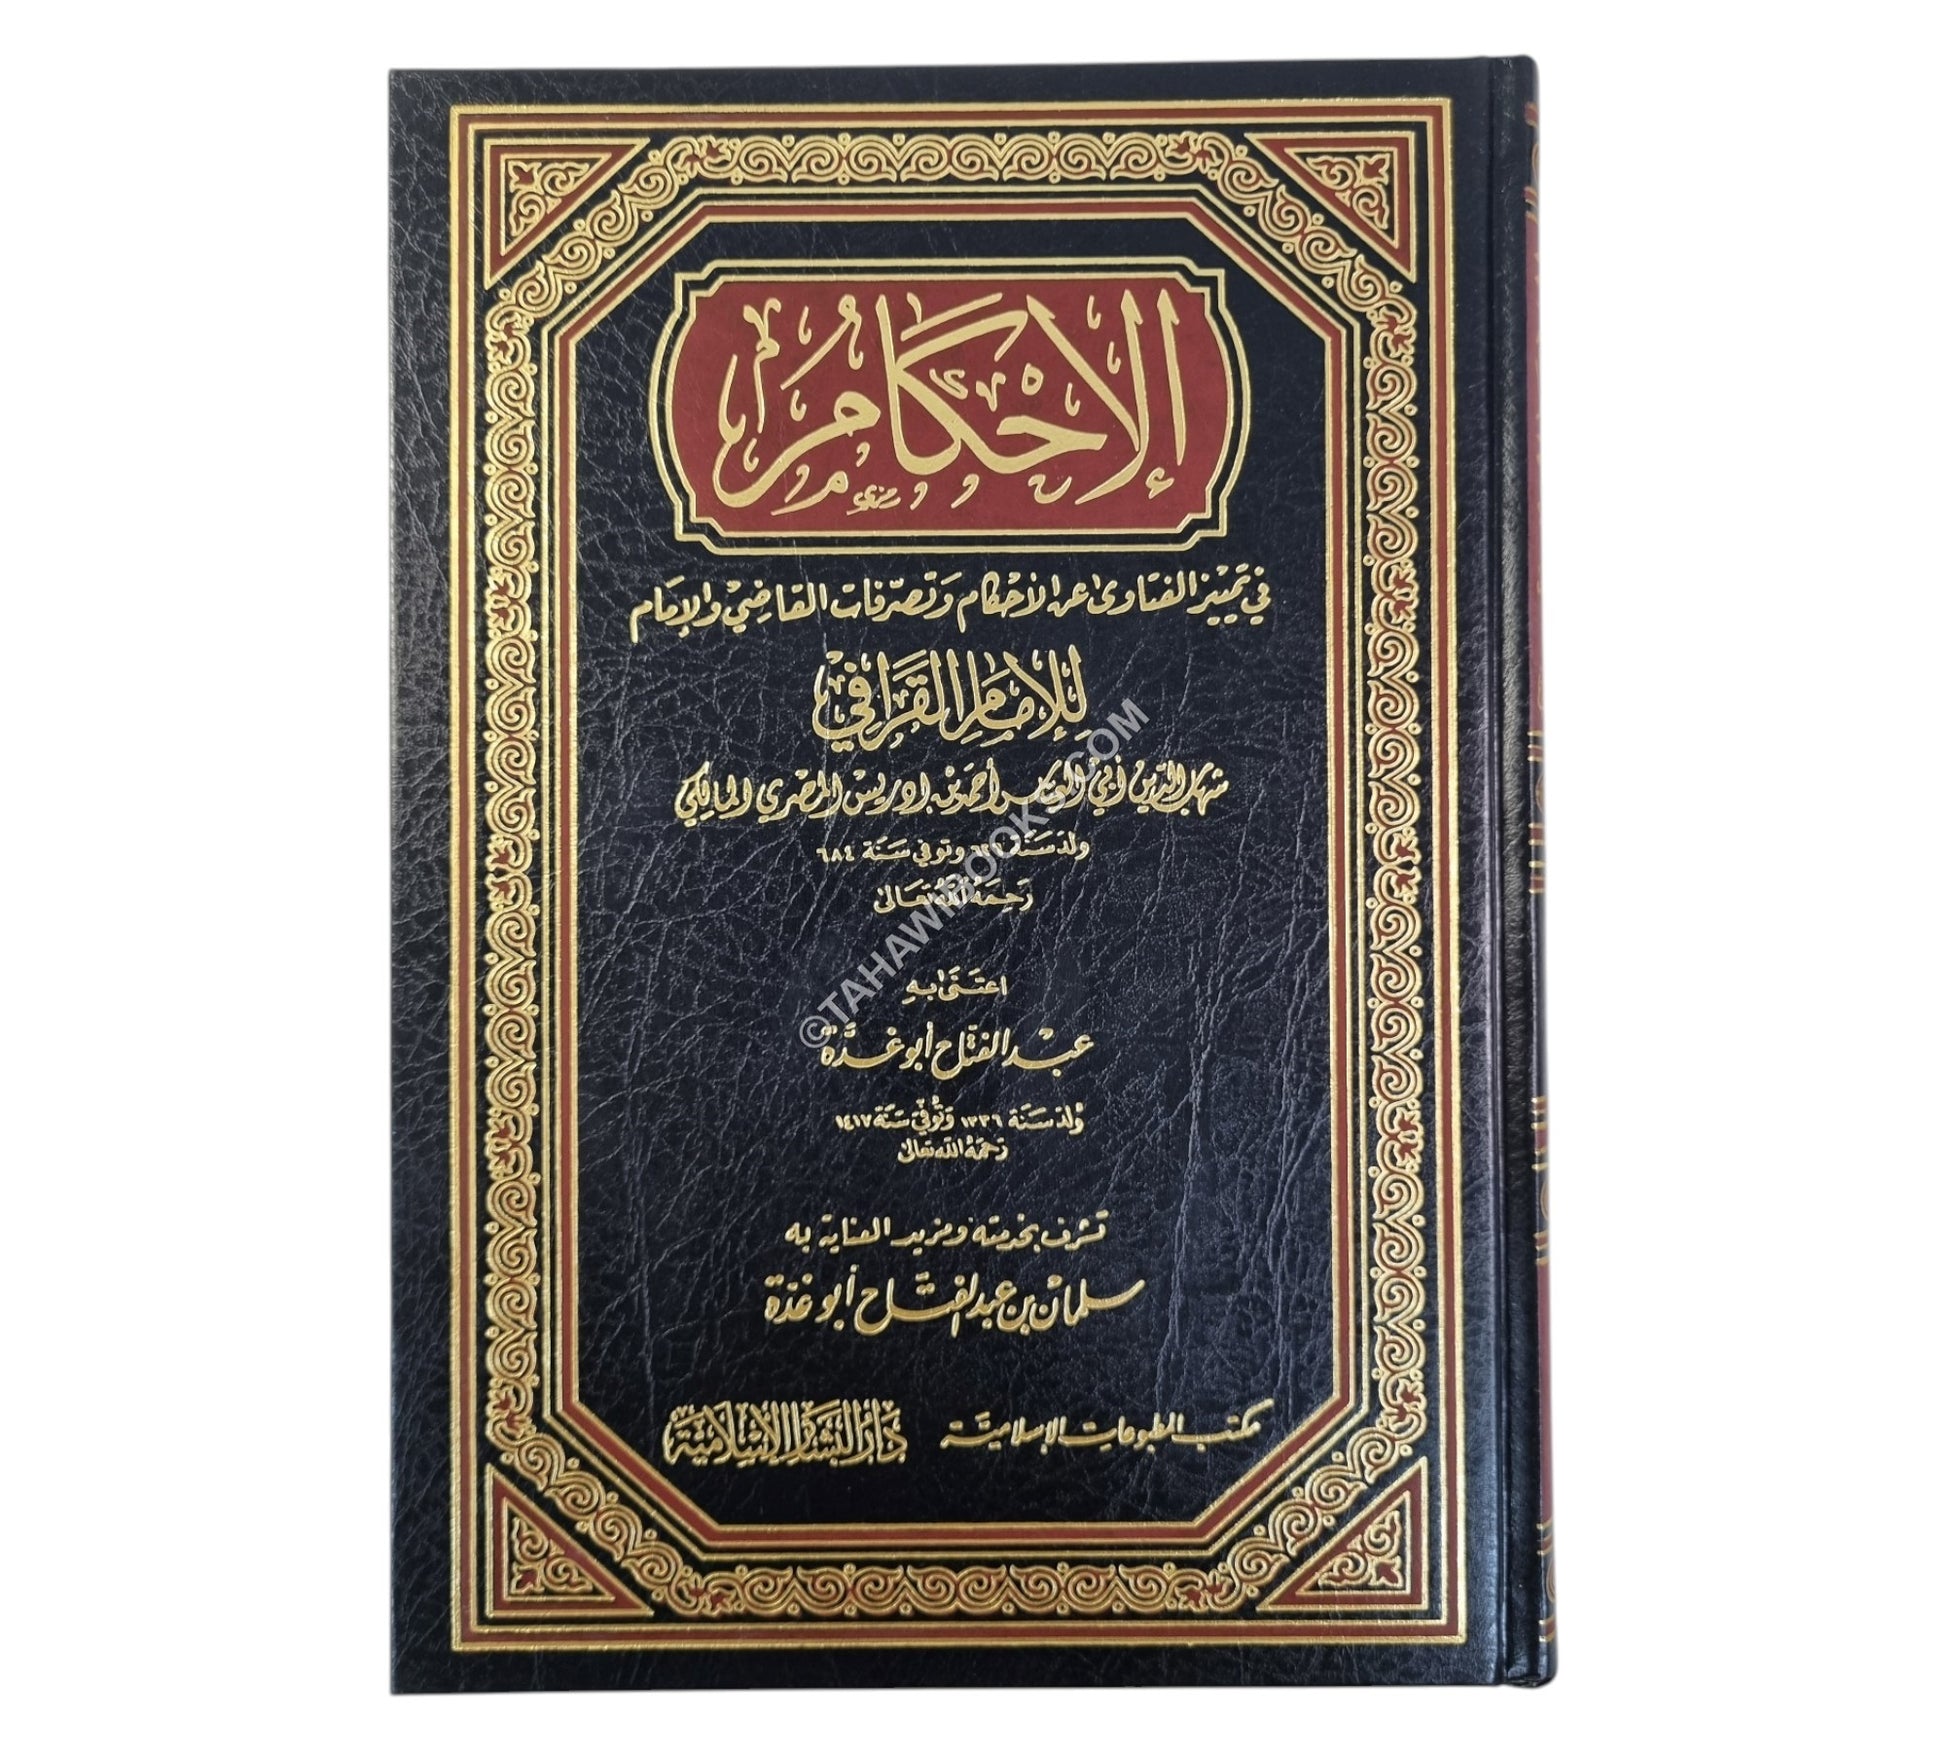 الإحكام
في تمييز الفتاوى عن الأحكام وتصرفات القاضي والإمام
للإمام القرافي
شهاب الدين أبي العباس أحمد بن إدريس المصري المالكي
ولد سنة ٦٢٦ وتوفي سنة ٦٨٤
رحمه الله تعالى
اعتنى به
عبد الفتاح أبو غدة
ولد سنة ١٣٣٦ وتوفي سنة ١٤١٧
رحمه الله تعالى
تشرف بخدمته ومزيد العناية به
سلمان بن عبد الفتاح أبو غدة
مكتب المطبوعات الإسلامية دار البشائر الإسلامية
©TAHAWIBOOKS.COM